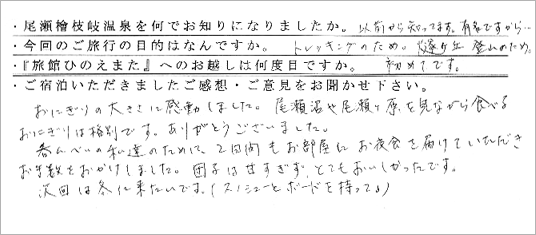 ・尾瀬檜枝岐温泉を何でお知りになりましたか。以前から知ってます。有名ですから…
・今回のご旅行の目的はなんですか。トレッキングのため。燧ヶ岳登山のため。
・『旅館ひのえまた』へのお越しは何度目ですか。初めてです。
・ご宿泊いただきましたご感想・ご意見をお聞かせ下さい。
おにぎりの大きさに感動しました。尾瀬沼や尾瀬ヶ原を見ながら食べる
おにぎりは格別です。ありがとうございました。
呑んべいの私達のために、2日間もお部屋にお夜食を届けていただき
お手数をおかけしました。団子は甘すぎず、とてもおいしかったです。
次回は冬に来たいです。(スノーシューとボードを持って♪)